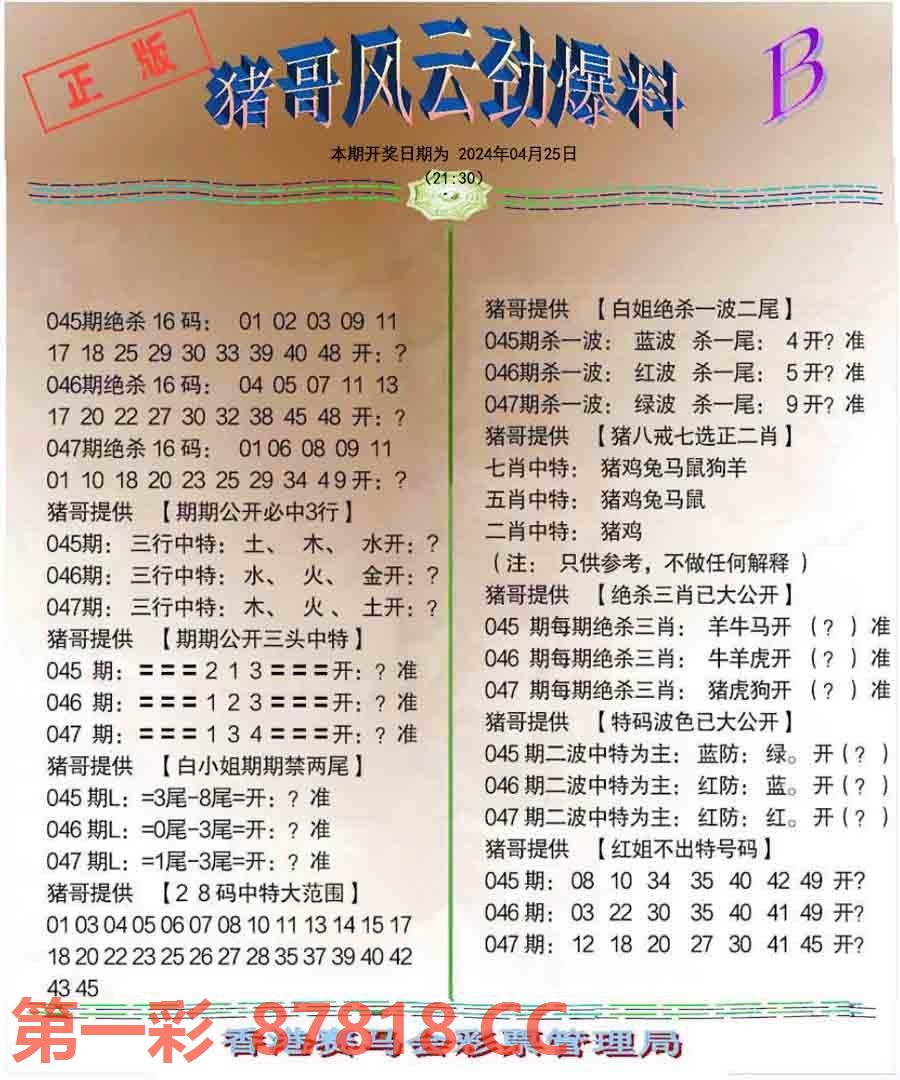 正版
猪哥风云劲爆料
B
本期开奖日期为 2024年04月25日
(21:30)
045期绝杀 16 码： 01 02 03 09 11
17 18 25 29 30 33 39 40 48 开：?
046期绝杀 16 码： 04 05 07 11 13
17 20 22 27 30 32 38 45 48 开：?
047期绝杀 16 码： 01 06 08 09 11
01 10 18 20 23 25 29 34 4 9 开：?
猪哥提供 【期期公开必中3行】
045期： 三行中特： 土、 木、 水开：?
046期： 三行中特： 水、 火、 金开：?
047期： 三行中特： 木、 火 、 土开：?
猪哥提供 【期期公开三头中特】
045 期：＝＝＝２１３＝＝＝开：? 准
046 期：＝＝＝１２３＝＝＝开：? 准
047 期：＝＝＝１３４＝＝＝开：? 准
猪哥提供 【白小姐期期禁两尾】
045 期L：=3尾-8尾=开：? 准
046 期L：=0尾-3尾=开：? 准
047 期L：=1尾-3尾=开：? 准
猪哥提供 【２８码中特大范围】
01 03 04 05 06 07 08 10 11 13 14 15 17
18 20 22 23 25 26 27 28 35 37 39 40 42
43 45
猪哥提供 【白姐绝杀一波二尾】
045期杀一波： 蓝波 杀一尾： 4 开? 准
046期杀一波： 红波 杀一尾： 5 开? 准
047期杀一波： 绿波 杀一尾： 9 开? 准
猪哥提供 【猪八戒七选正二肖】
七肖中特： 猪鸡兔马鼠狗羊
五肖中特： 猪鸡兔马鼠
二肖中特： 猪鸡
（注： 只供参考，不做任何解释 ）
猪哥提供 【绝杀三肖已大公开】
045 期每期绝杀三肖： 羊牛马开 （? ）准
046 期每期绝杀三肖： 牛羊虎开 （? ）准
047 期每期绝杀三肖： 猪虎狗开 （? ）准
猪哥提供 【特码波色已大公开】
045 期二波中特为主：蓝防：绿。开（? ）
046 期二波中特为主：红防：蓝。开（? ）
047 期二波中特为主：红防：红。开（? ）
猪哥提供 【红姐不出特号码】
045 期： 08 10 34 35 40 42 49 开?
046 期： 03 22 30 35 40 41 49 开?
047 期： 12 18 20 27 30 41 45 开?
第一彩 87818.CC
香港赛马会彩票管理局